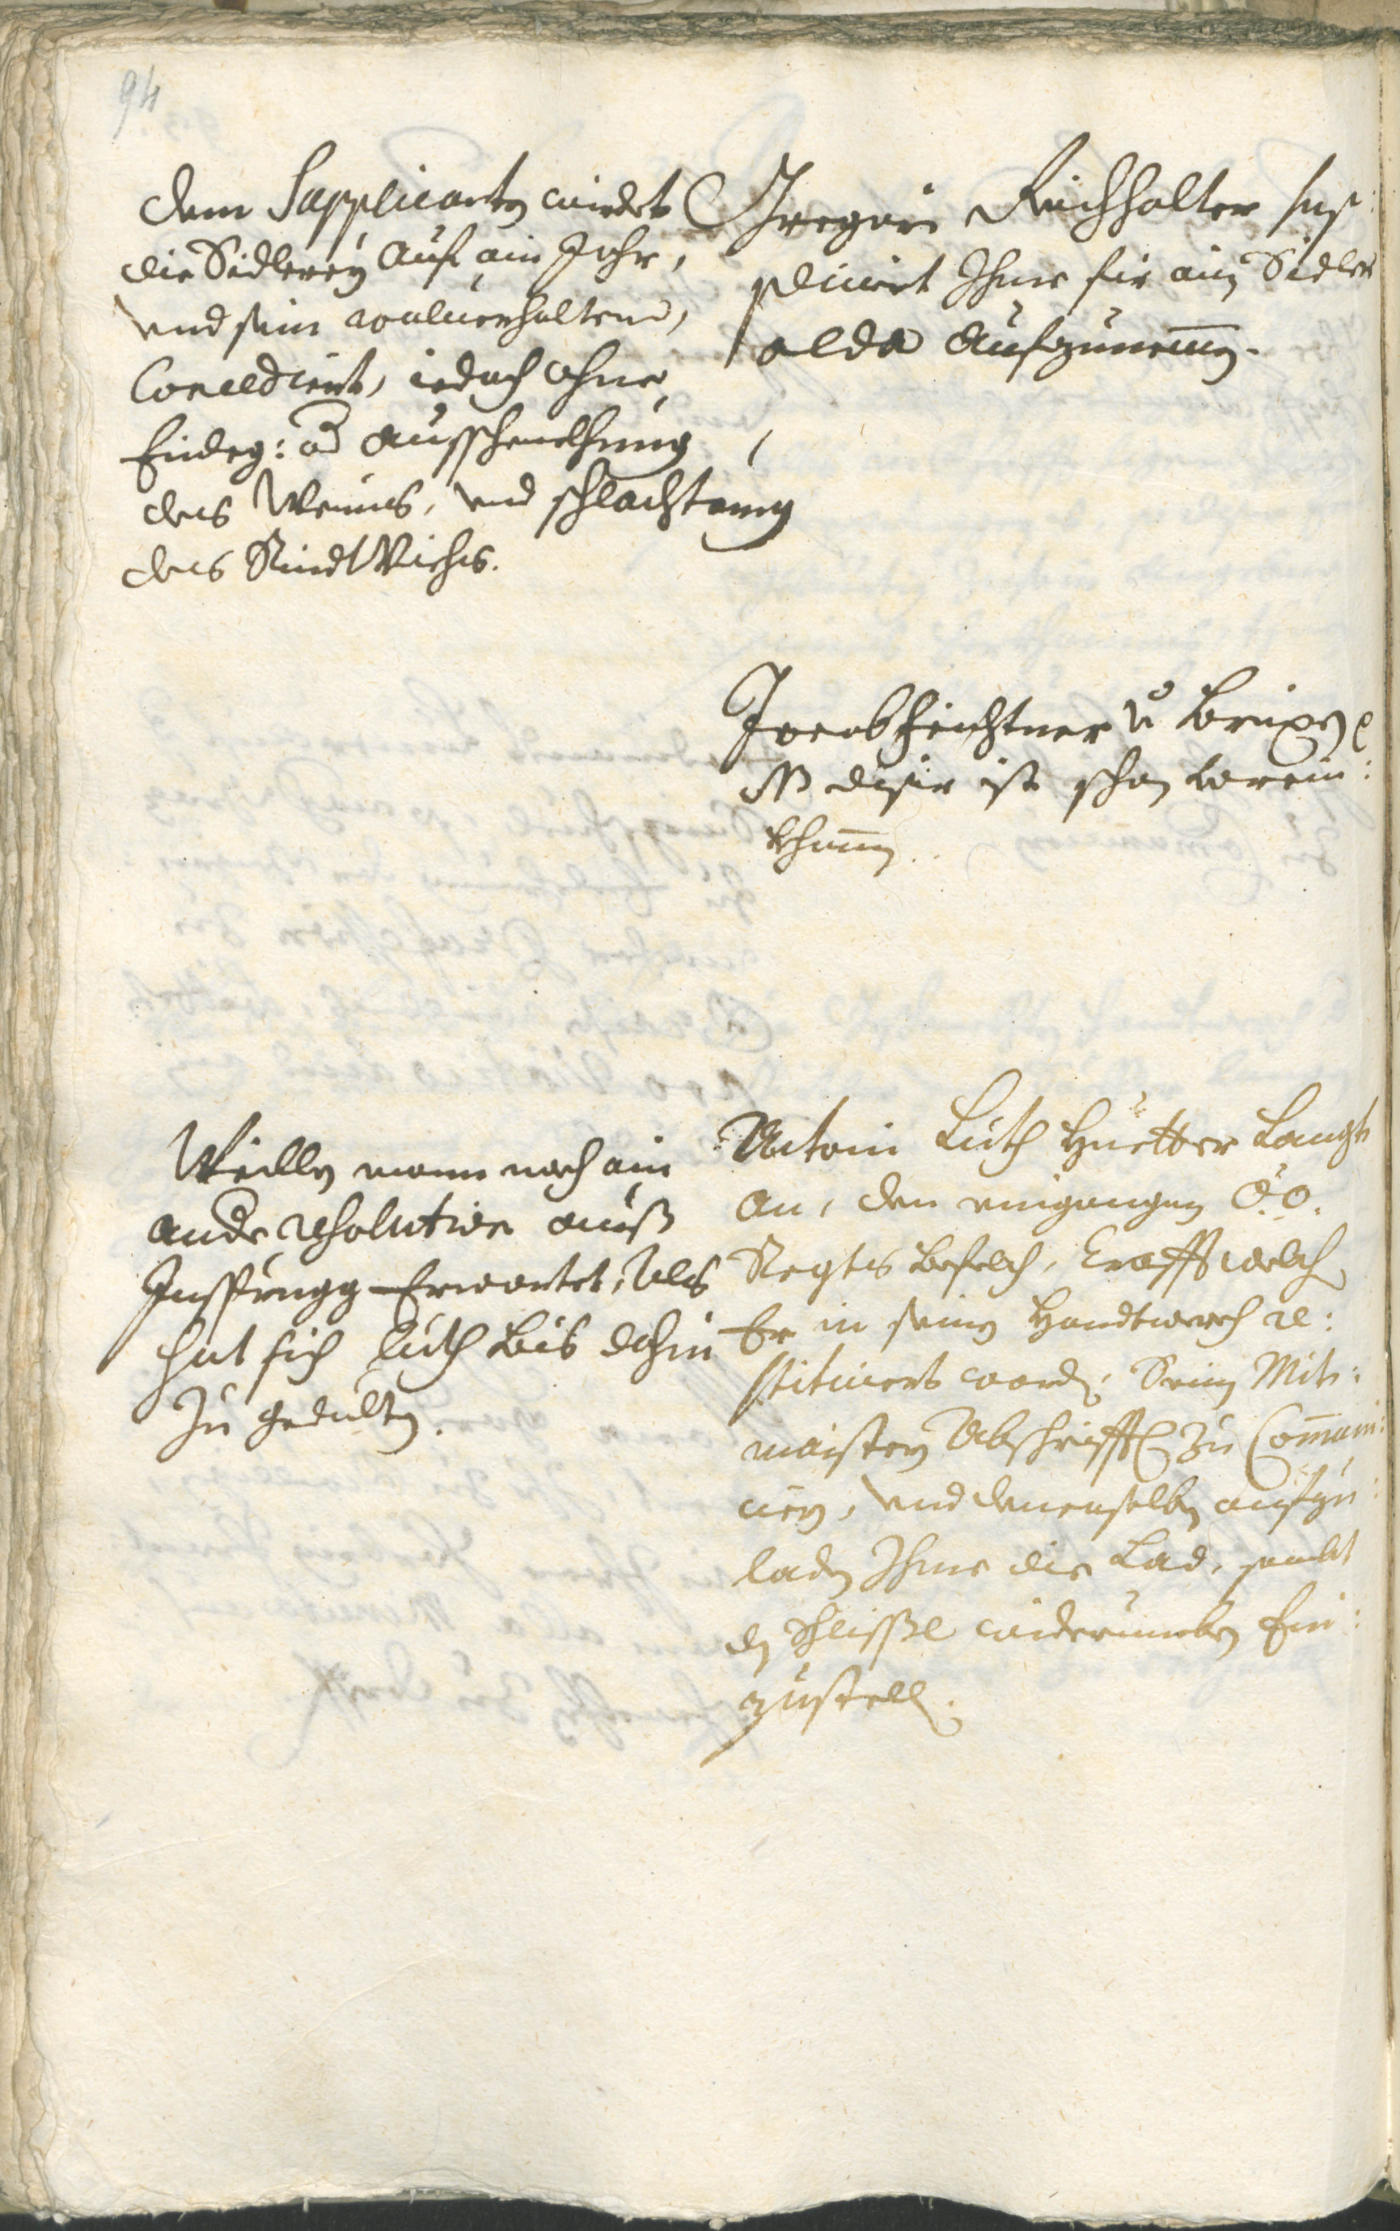 94
Dem Supplicanten wirdet
die Sidlerey auf ain Jahr,
vnd sein wolverhalten,
Concediert, iedoch ohne
Einleg: od Ausschenckhung
des Weins, vnd schlachtung
des Rindt Viehs.
Gregori Reichhalter sup:
pliciert Ihme für ain Sidler
alda aufzunemen.
Jacob Feichtner v Brixen
NB diser ist schon vorein:
khumen.
Weillen mann noch ain
ander resolution auß
Insprugg Erwartet, Als
hat sich Luth bis dahin
zu gedulten.
Antoni Luth Huetter Langt
an, den eingangnen O:Ö.
Regts befelch, Crafft welch
Er in seinen Handtwerch re:
stituiert worden, Seinen Mit:
maistern Abschrifft zu Communi:
ciern, vnd denenselben aufzu:
laden Ihme die Lad, sambt
den Schlissl widerumben Ein:
zustellen.